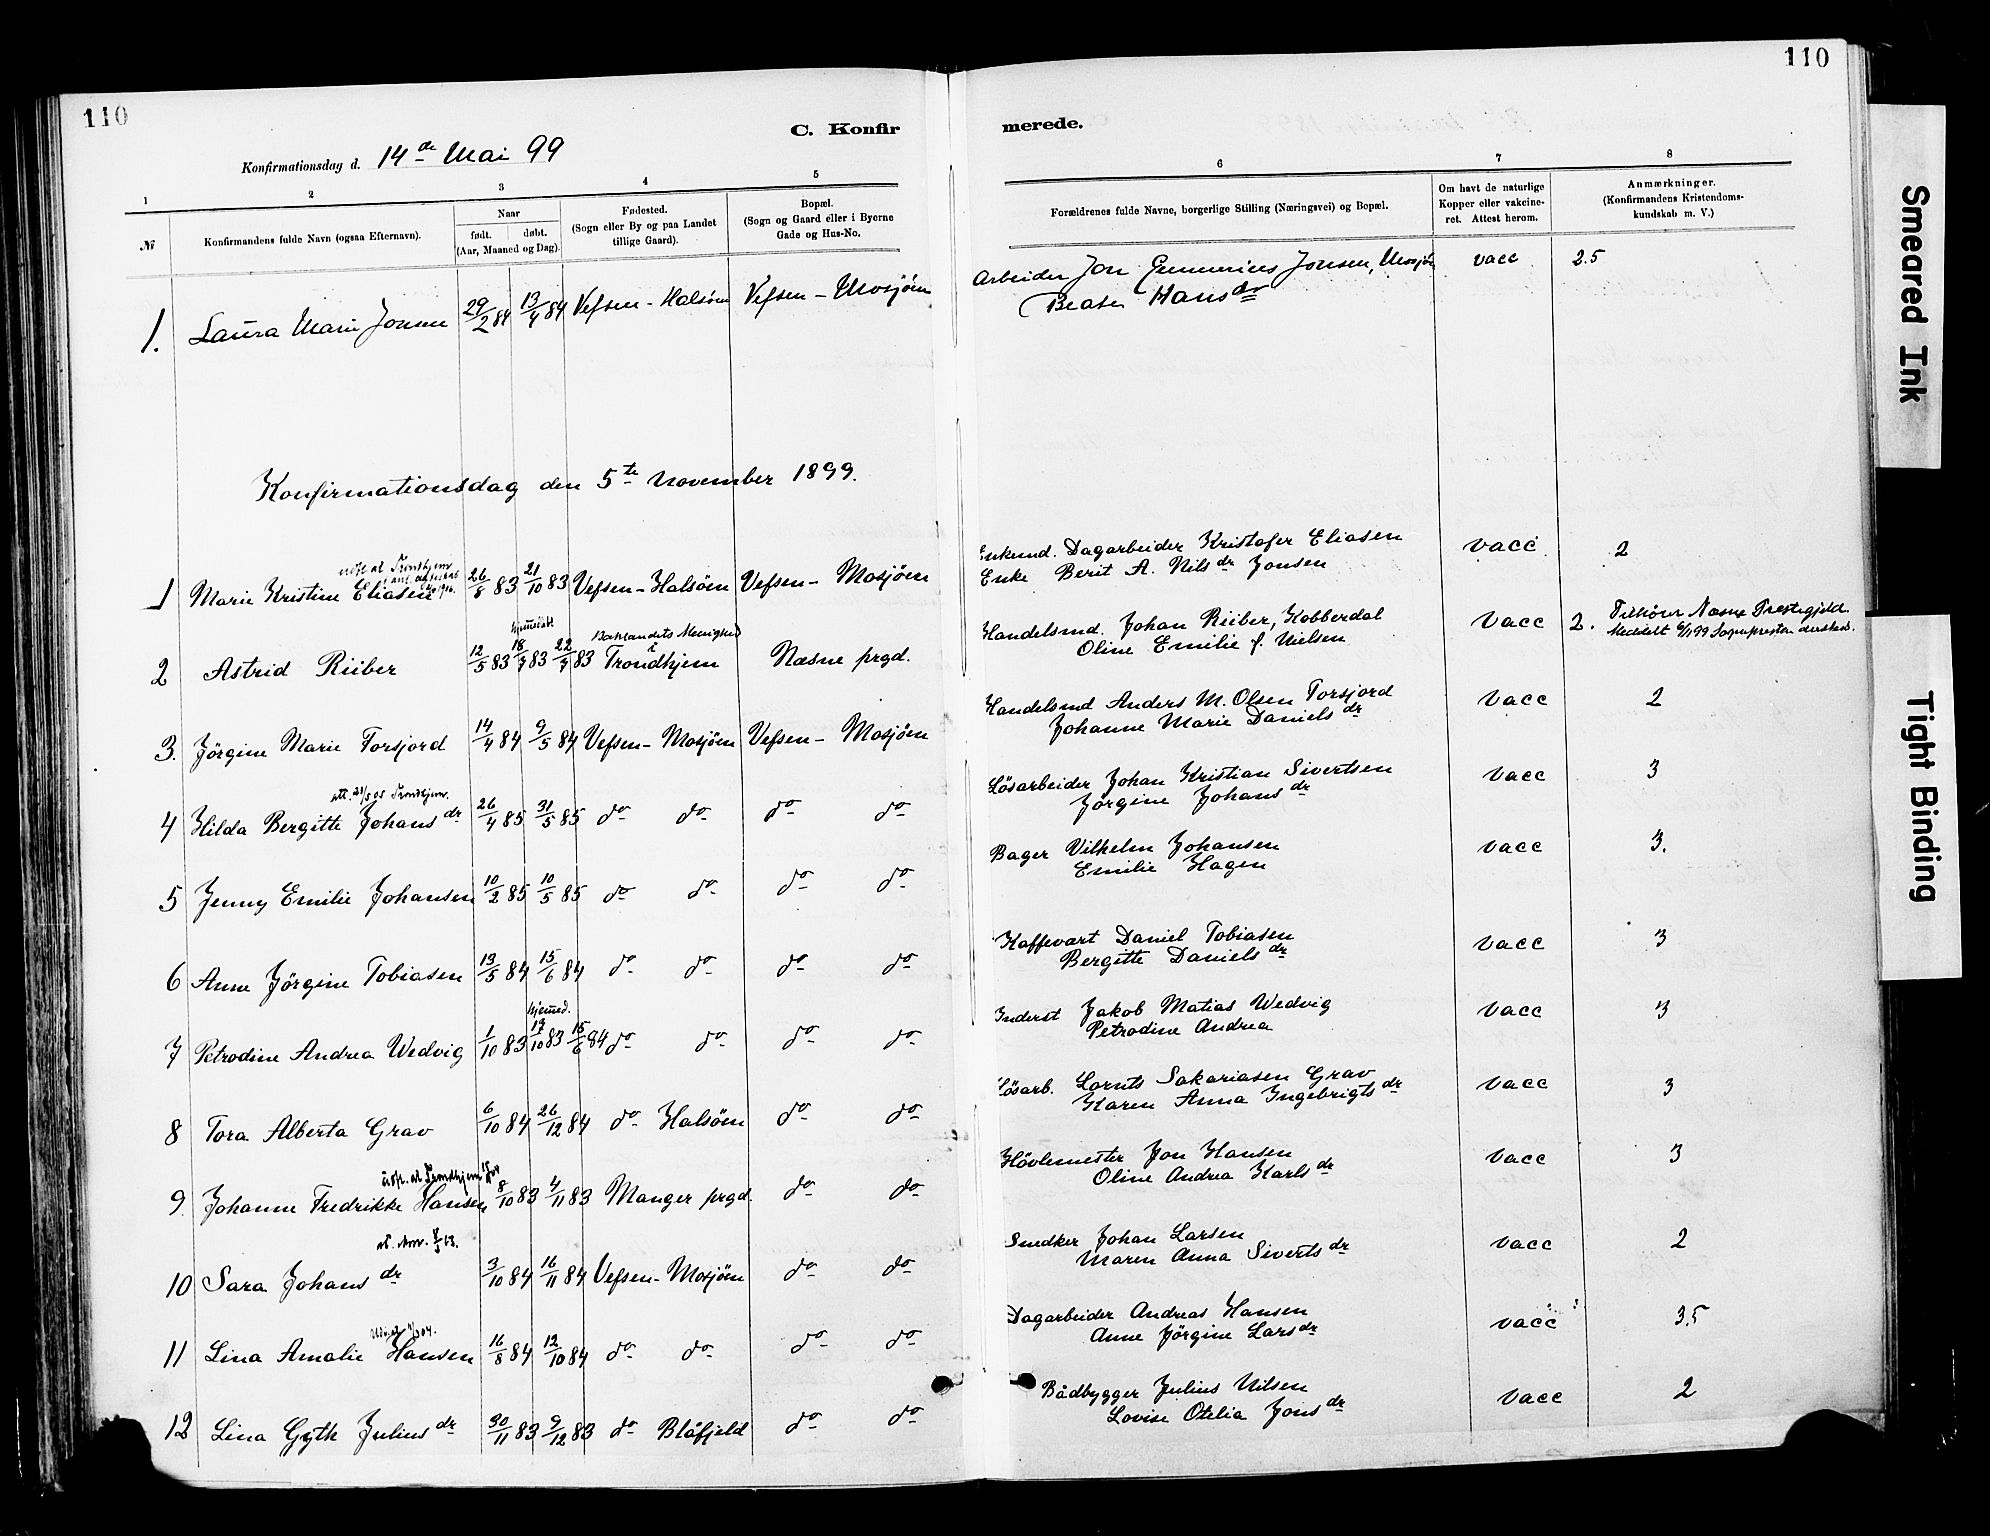 110
110
C. Konfir
merede.
Konfirmationsdag d. 14de Mai 99
1 2 3 4 5
6 7 8
№
Konfirmandens fulde Navn (ogsaa Efternavn).
Naar
født. døbt.
(Aar, Maaned og Dag).
Fødested.
(Sogn eller By og paa Landet
tillige Gaard).
Bopæl.
(Sogn og Gaard eller i Byerne
Gade og Hus-No.
Forældrenes fulde Navne, borgerlige Stilling (Næringsvei) og Bopæl.
Om havt de naturlige
Kopper eller vakcine-
ret. Attest herom.
Anmærkninger.
(Konfirmandens Kristendoms-
kundskab m. V.)
1. Laura Marie Jonsen 29/2 84 13/4 84 Vefsen - Halsøen Vefsen - Mosjøen
Arbeider Jon Gunnerius Jonsen, Mosjøn vacc 2.5
Beate Hansdr
Konfirmationsdag den 5te November 1899.
1 Marie Kristine Eliasen 26/8 83 21/10 83 Vefsen - Halsøen Vefsen - Mosjøen
Enkemd. Dagarbeider Kristofer Eliasen vacc 2
Enke Berit A. Nilsdr Jonsen
hjemmedøbt Baklandets Menighed
2 Astrid Riiber 12/5 83 18/7 83 22/7 83 Trondhjem Næsne prgd.
Handelsmd. Johan Riiber, Kobberdal vacc 2. Tilhører Næsne Prestegjeld.
Oline Emilie f. Nielsen Meddelt 6/11 99 Sognepresten dersteds.
3. Jørgine Marie Forsjord 14/4 84 9/5 84 Vefsen - Mosjøen Vefsen - Mosjøen
Handelsmd Anders M. Olsen Forsjord vacc 2
Johanne Marie Danielsdr
att. 21/5 05 Trondhjem.
4 Hilda Bergitte Johansdr 26/4 85 31/5 85 do do do do
Løsarbeider Johan Kristian Sivertsen vacc 3
Jørgine Johansdr
5 Jenny Emilie Johansen 10/2 85 10/5 85 do do do do
Bager Vilhelm Johansen vacc 3.
Emilie Hagen
6 Anne Jørgine Tobiasen 13/5 84 15/6 84 do do do do
Kaffevært Daniel Tobiasen vacc 3
Bergitte Danielsdr
hjemmed.
7 Petrodine Andrea Wedvig 1/10 83 17/10 83 15/6 84 do do do do
Inderst Jakob Matias Wedvig vacc 3
Petrodine Andrea
8 Tora Alberta Grav 6/10 84 26/12 84 do Halsøen do do
Løsarb. Lornts Sakariasen Grav vacc 3
Karen Anna Ingebrigtsdr
9. Johanne Fredrikke Hansen 8/10 83 4/11 83 Manger prgd. do do
Høvlemester Jon Hansen vacc 3
Oline Andrea Karlsdr
10 Sara Johansdr 3/10 84 16/11 84 Vefsen - Mosjøen do do
Snedker Johan Larsen vacc 2
Maren Anna Sivertsdr
11 Lina Amalie Hansen 16/8 84 12/10 84 do do do do
Dagarbeider Andreas Hansen vacc 3.5
Anne Jørgine Larsdr
12 Lina Gyth Juliusdr 30/11 83 9/12 83 do Blåfjeld do do
Bådbygger Julius Nilsen vacc 2
Lovise Otelia Jonsdr
Smeared Ink
Tight Binding